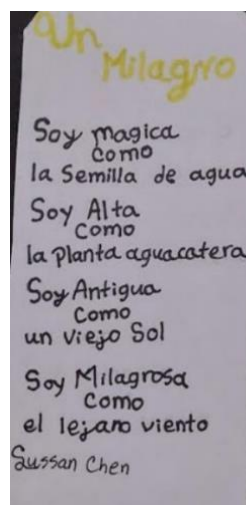 Un
Milagro
Soy magica
como
la Semilla de agua
Soy Alta
como
la planta aguacatera
Soy Antigua
como
un viejo Sol
Soy Milagrosa
como
el lejano viento
Sussan Chen